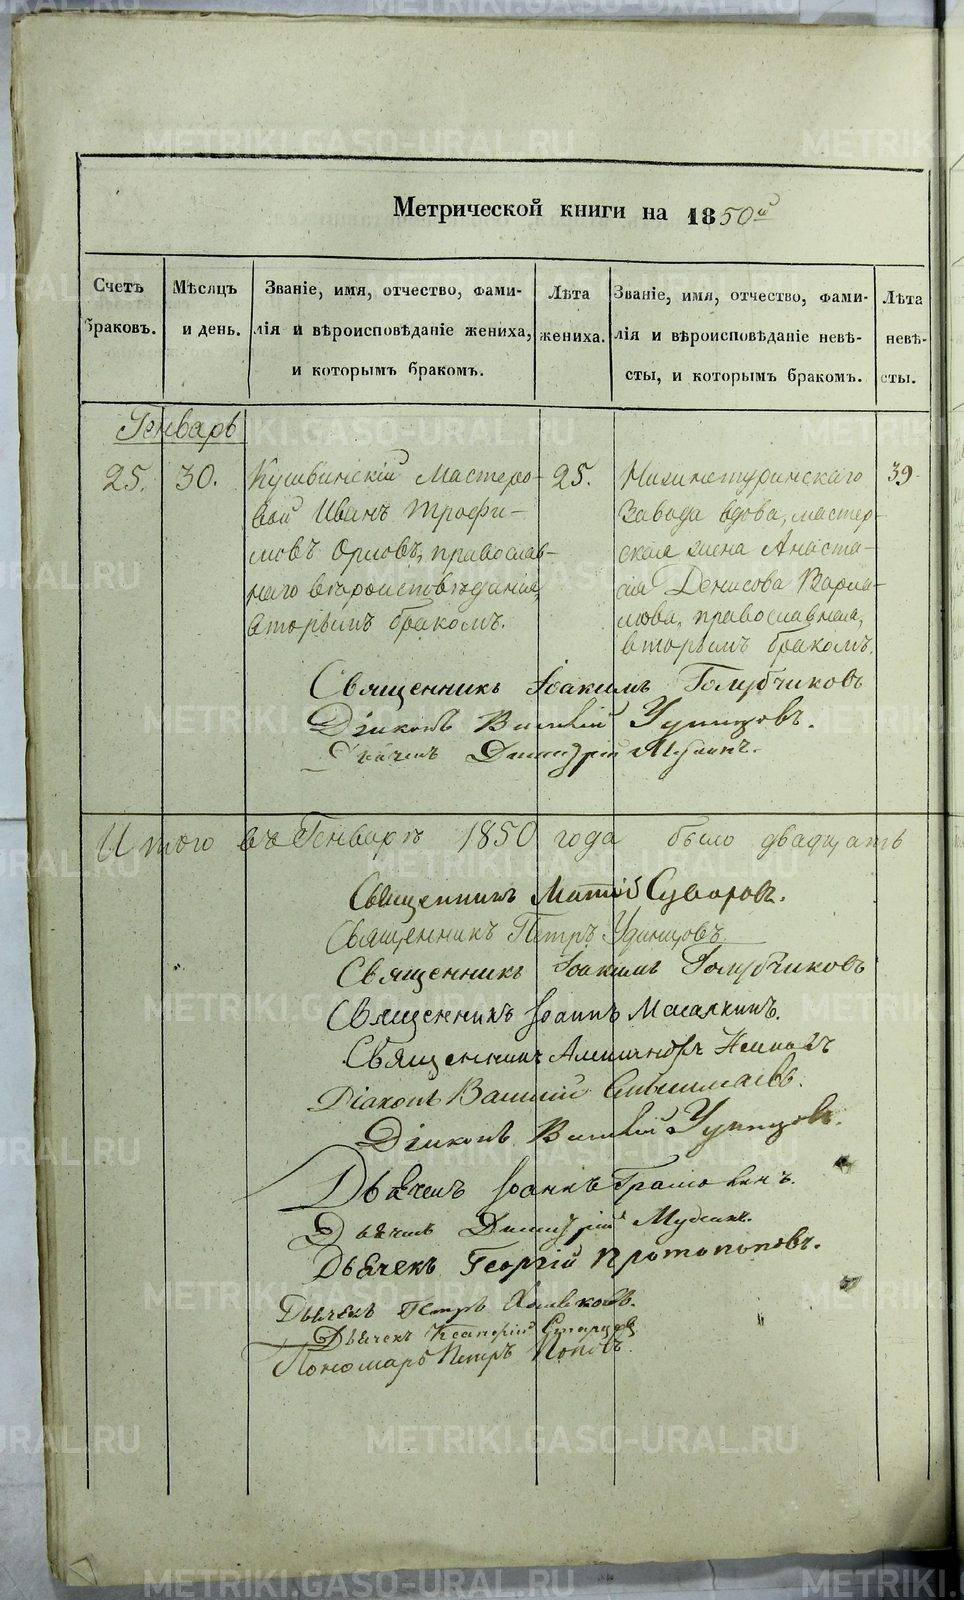 Метрической книги на 1850й
Счетъ браковъ.
Мѣсяцъ и день.
Званіе, имя, отчество, фамилія и вѣроисповѣданіе жениха, и которымъ бракомъ.
Лѣта жениха.
Званіе, имя, отчество, фамилія и вѣроисповѣданіе невѣсты, и которымъ бракомъ.
Лѣта невѣсты.
Генварь
25. 30.
Кушвинскій Мастеро-
вой Иванъ Трофи-
мовъ Орловъ, православ-
наго вѣроисповѣданія,
вторымъ бракомъ.
25.
Нижнетуринскаго
Завода вдова, мастер-
ская жена Анаста-
сія Денисова Варла-
мова, православная,
вторымъ бракомъ.
39
Священникъ Іоакимъ Голубчиковъ
Діаконъ Василій
Дьячекъ Димитрій
Итого въ Генварѣ 1850 года было двадцать
Священникъ Матѳій Суворовъ.
Священникъ Петръ Удинцовъ
Священникъ Іоакимъ Голубчиковъ
Священникъ Іоаннъ
Священникъ Александръ
Діаконъ Василій
Діаконъ Василій
Дьячекъ Іоаннъ
Дьячекъ Димитрій
Дьячекъ Георгій Протопоповъ.
Дьячекъ Петръ
Дьячекъ
Пономарь Петръ Поповъ
METRIKI.GASO-URAL.RU